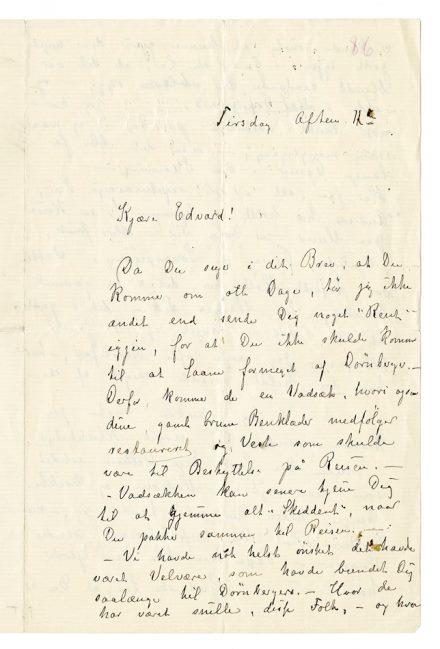 86
Tirsdag Aften.
Kjære Edvard!
Da Du siger i dit Brev, at Du
kommer om otte Dage, tør jeg ikke
andet end sende Dig noget "Rent"
igjen, for at Du ikke skulde komme
til at laane formeget af Dörnberger.
Derfor kommer de en Vadsæk, hvori ogsaa
dine gamle brune Benklæder medfølger
restaureret og Veste som skulde
være til Beskyttelse på Reisen. —
– Vadsækken kan senere tjene Dig
til at gjemme alt "Skiddent", naar
Du pakker sammen til Reisen. —
– Vi havde nok helst ønsket det havde
været Velvære, som havde bundet Dig
saalænge til Dörnbergers. – Hvor de
har været snille, disse Folk, – og hvor